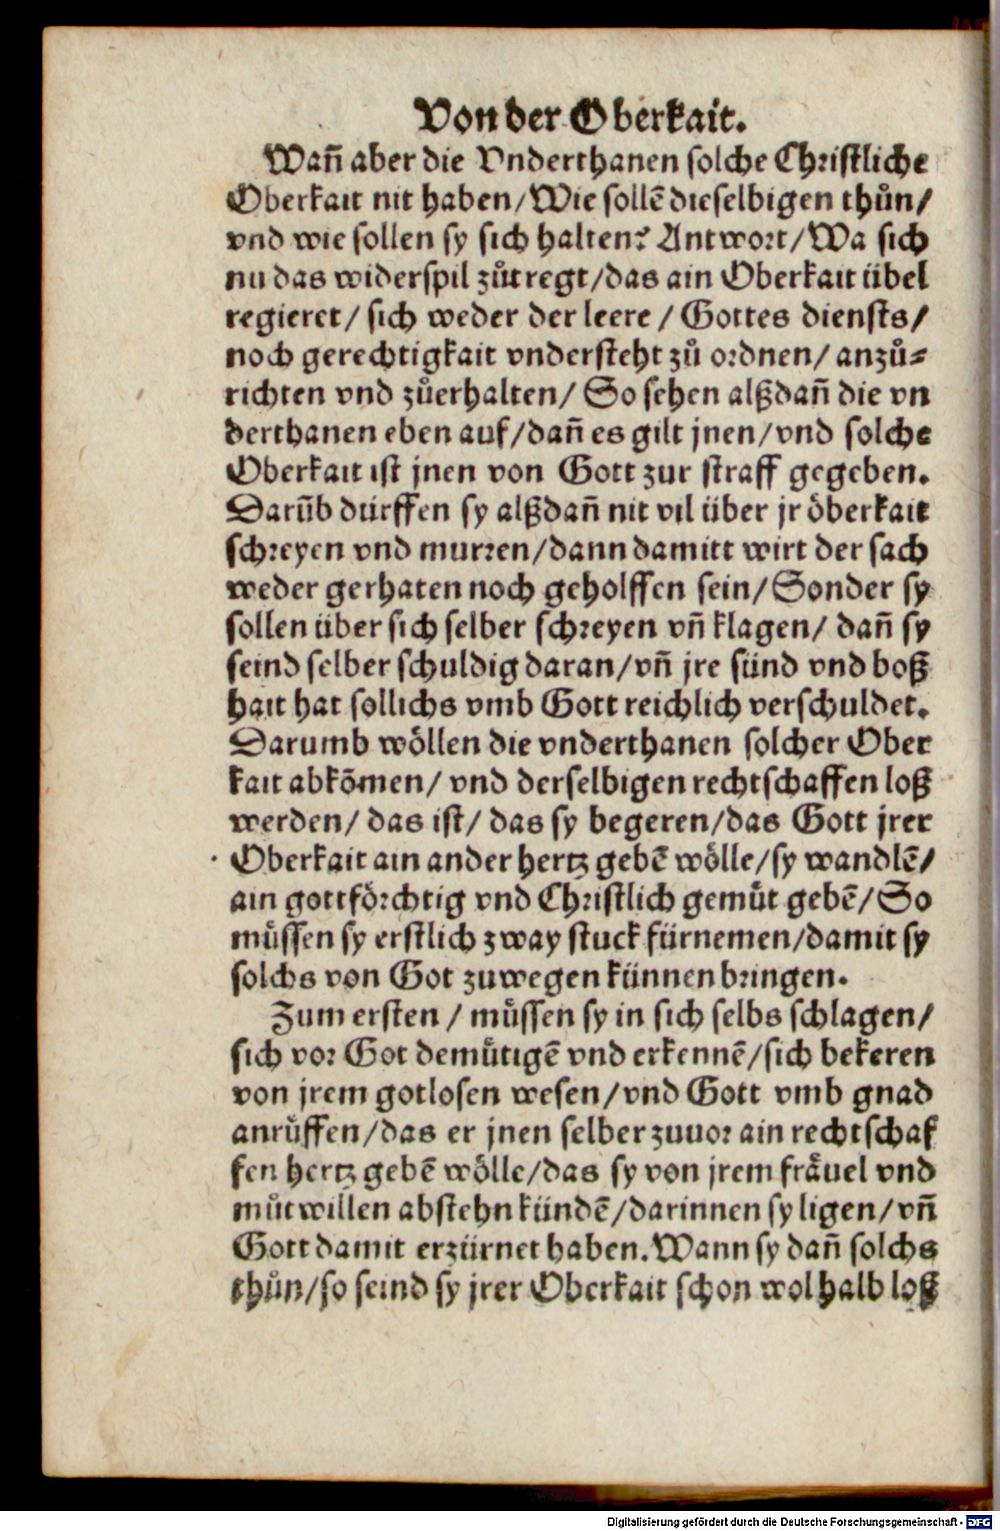 Von der Oberkait.
Wañ aber die Vnderthanen solche Christliche
Oberkait nit haben/Wie sollẽ dieselbigen thůn/
vnd wie sollen sy sich halten? Antwort/Wa sich
nu das widerspil zůtregt/das ain Oberkait übel
regieret/ sich weder der leere / Gottes diensts/
noch gerechtigkait vndersteht zů ordnen/ anzů⸗
richten vnd zůerhalten/ So sehen alßdañ die vn
derthanen eben auf/dañ es gilt jnen/vnd solche
Oberkait ist jnen von Gott zur straff gegeben.
Darũb dürffen sy alßdañ nit vil über jr öberkait
schreyen vnd murren/dann damitt wirt der sach
weder gerhaten noch geholffen sein/Sonder sy
sollen über sich selber schreyen vñ klagen/ dañ sy
seind selber schuldig daran/vñ jre sünd vnd boß
hait hat sollichs vmb Gott reichlich verschuldet.
Darumb wöllen die vnderthanen solcher Ober
kait abkõmen/ vnd derselbigen rechtschaffen loß
werden/ das ist/ das sy begeren/das Gott jrer
Oberkait ain ander hertz gebẽ wölle/sy wandlẽ/
ain gottförchtig vnd Christlich gemůt gebẽ/So
můssen sy erstlich zway stuck fürnemen/damit sy
solchs von Got zuwegen künnen bringen.
Zum ersten / můssen sy in sich selbs schlagen/
sich vor Got demůtigẽ vnd erkennẽ/sich bekeren
von jrem gotlosen wesen/vnd Gott vmb gnad
anrůffen/das er jnen selber zuuor ain rechtschaf
fen hertz gebẽ wölle/das sy von jrem fräuel vnd
můtwillen abstehn kündẽ/darinnen sy ligen/vñ
Gott damit erzürnet haben. Wann sy dañ solchs
thůn/so seind sy jrer Oberkait schon wol halb loß
Digitalisierung gefördert durch die Deutsche Forschungsgemeinschaft - DFG